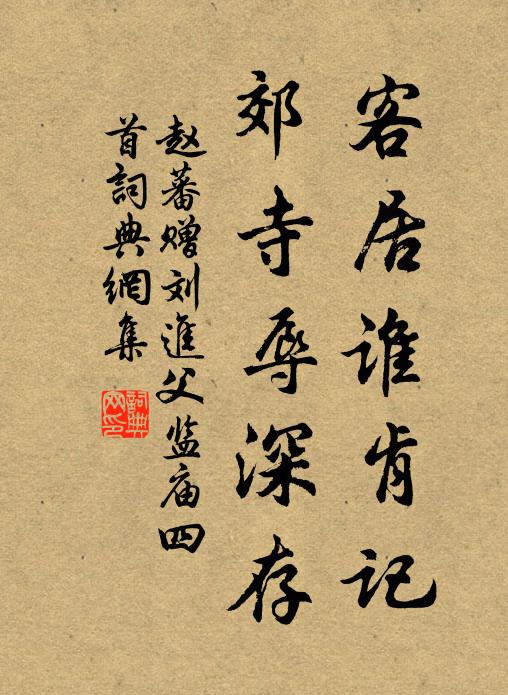 客居谁肯记
郊寺辱深存
赵蕃赠刘進父监庙四
首詞典網集
詞典
网印